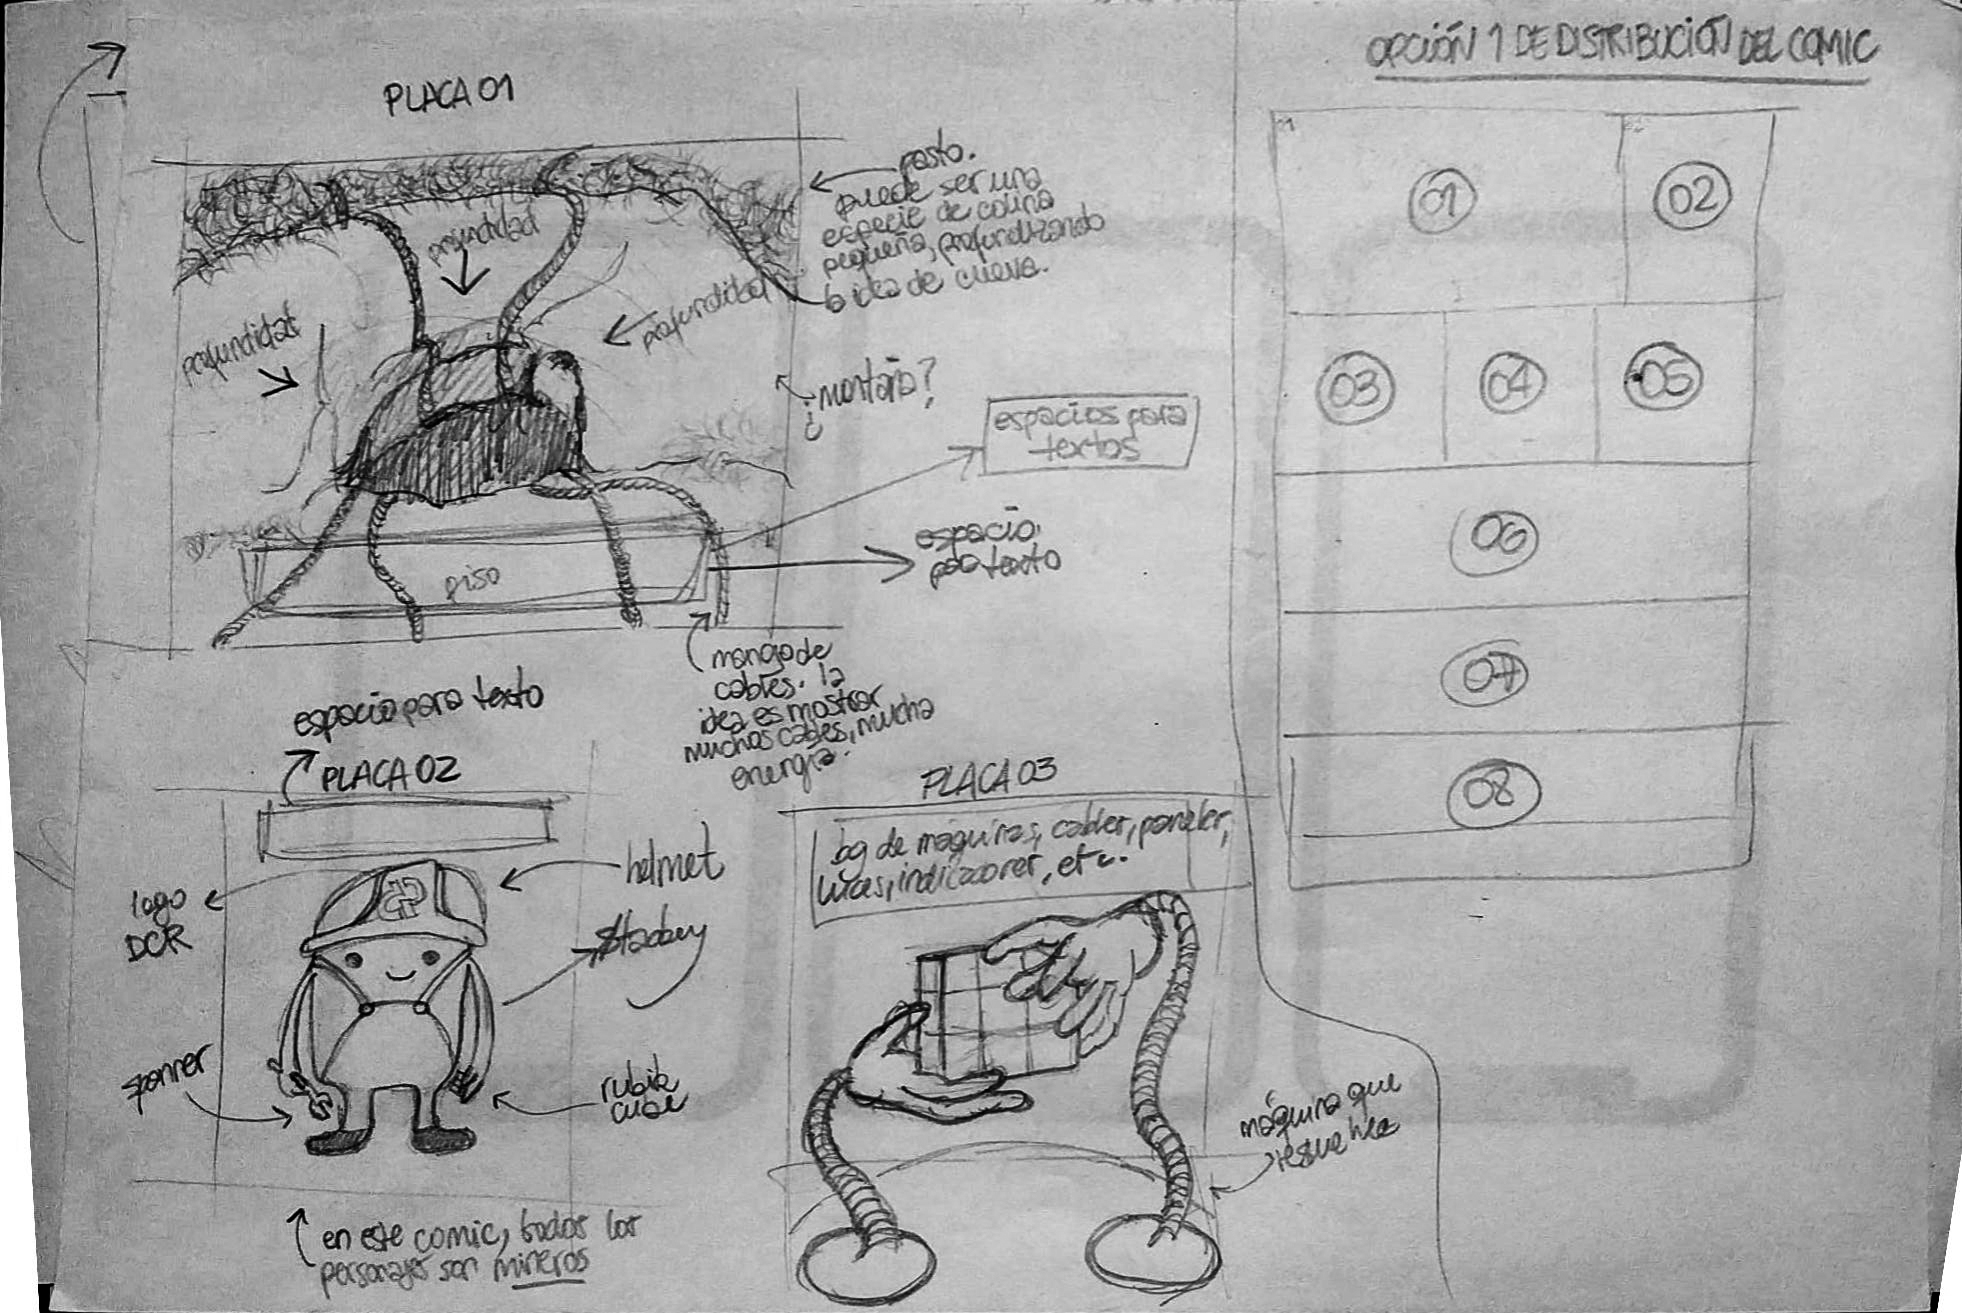 OPCIÓN 1 DE DISTRIBUCIÓN DEL COMIC
PLACA 01
pasto.
puede ser una
especie de colina
pequeña, profundizando
la idea de cueva.
profundidad
profundidad
profundidad
¿montaña?
espacios para
textos
espacio
para texto
piso
manojo de
cables. la
idea es mostrar
muchos cables, mucha
energía.
espacio para texto
PLACA 02
helmet
logo
DCR
spanner
rubik
cube
en este comic, todos los
personajes son mineros
PLACA 03
bg de máquinas, cables, paneles,
luces, indicadores, etc.
máquina que
resuelve
01
02
03
04
05
06
07
08